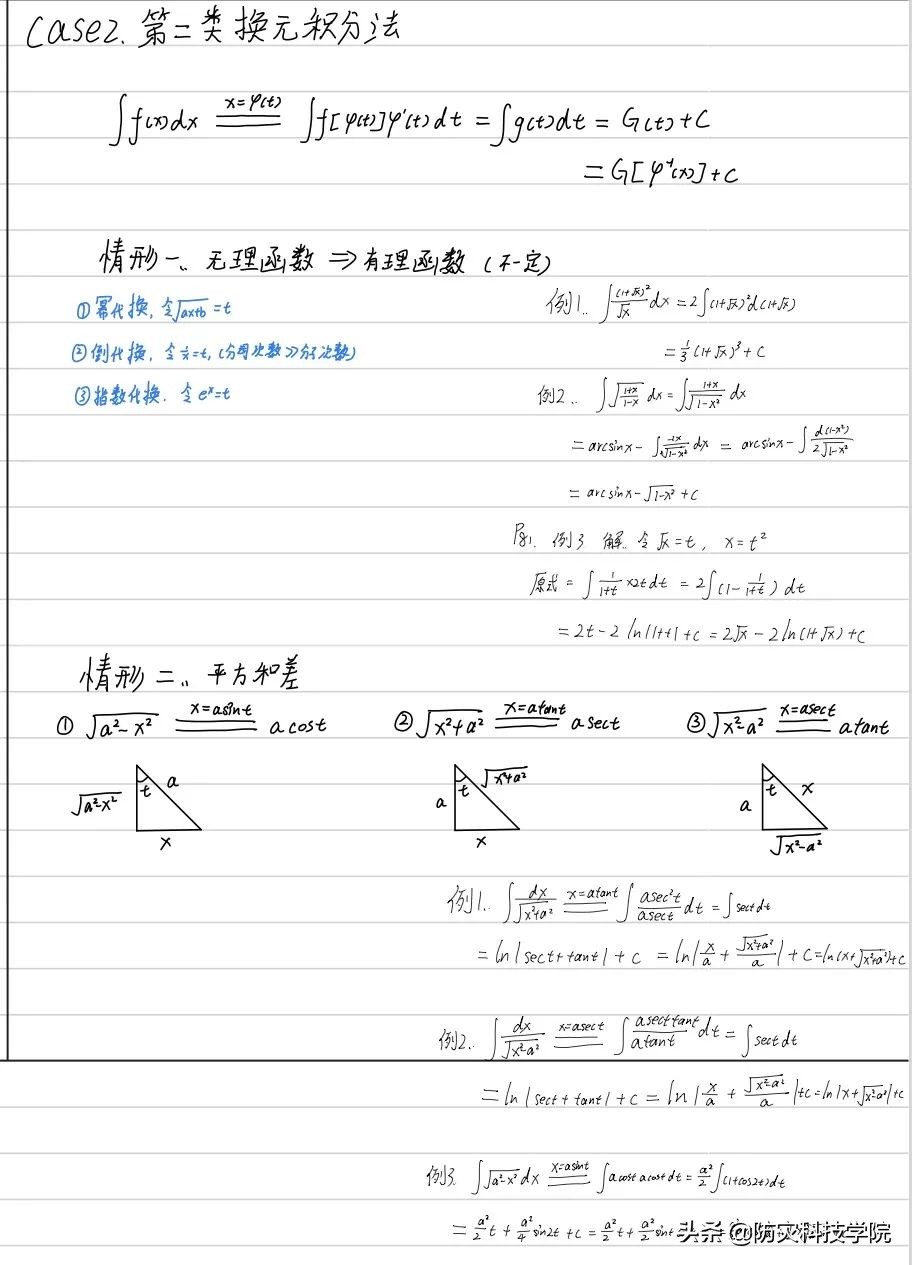 Case2. 第二类换元积分法
∫f(x)dx x=φ(t) ∫f[φ(t)]φ'(t)dt = ∫g(t)dt = G(t)+C
= G[φ⁻¹(x)]+C
情形一、无理函数 ⇒ 有理函数 (不一定)
①幂代换, 令√ax+b = t
②倒代换, 令1/x=t, (分母次数≫分子次数)
③指数代换. 令 eˣ=t
例1. ∫(1+√x)²/√x dx = 2∫(1+√x)²d(1+√x)
= 1/3 (1+√x)³+C
例2. ∫√(1+x)/(1-x) dx = ∫(1+x)/√(1-x²) dx
= arcsinx - ∫-2x/2√(1-x²) dx = arcsinx - ∫d(1-x²)/2√(1-x²)
= arcsinx - √(1-x²) + C
P81. 例3 解. 令√x=t, x=t²
原式 = ∫1/(1+t) ×2t dt = 2∫(1 - 1/(1+t)) dt
= 2t - 2 ln|1+t| + C = 2√x - 2ln(1+√x)+C
情形二、平方和差
① √(a²-x²) x=asint acost
② √(x²+a²) x=atant asect
③ √(x²-a²) x=asect atant
√(a²-x²) t a x
a t √(x²+a²) x
a t x √(x²-a²)
例1. ∫dx/√(x²+a²) x=atant ∫asec²t/asect dt = ∫sectdt
= ln|sect+tant|+C = ln|x/a + √(x²+a²)/a|+C=ln(x+√(x²+a²))+C
例2. ∫dx/√(x²-a²) x=asect ∫asecttant/atant dt = ∫sectdt
= ln|sect+tant|+C = ln|x/a + √(x²-a²)/a|+C=ln|x+√(x²-a²)|+C
例3. ∫√(a²-x²) dx x=asint ∫acost acost dt = a²/2 ∫(1+cos2t)dt
= a²/2 t + a²/4 sin2t + C = a²/2 t + a²/2 sint
头条 @防灾科技学院